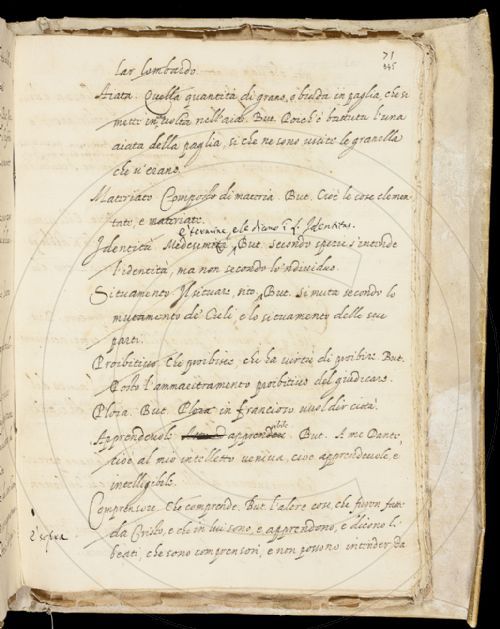 71
345
lar lombardo.
Aiata. Quella quantità di grano, o biada in paglia, che si
mette in volta nell'aia. But. Poich'è battuta l'una
aiata della paglia, si che ne sono uscite le granella
che v'erano.
Materiato Composto di materia. But. Cioè le cose elemen-
tate, e materiate.
È termine, e le diamo
Identità Medesimità, But. secondo spezie s'intende
l'identità, ma non secondo lo'ndividuo.
Situamento Il situare, sito, But. Si muta secondo lo
mutamento de' Cieli e lo situamento delle sue
parti.
Proibitivo. Che proibisce, che ha virtù di proibire. But.
Posto l'ammaestramento proibitivo del giudicare.
Ploia. But. Ploia in francioso vuol dir città
Apprendevole apprendibile. But. A me Dante,
cioè al mio intelletto veniva, cioè apprendevole, e
intelligibile.
Comprensore. Che comprende. But. l'altre cose, che furon fatte
da Cristo, e che in lui sono, e apprendono, e dicono li
beati, che sono comprensori, e non possono intender da